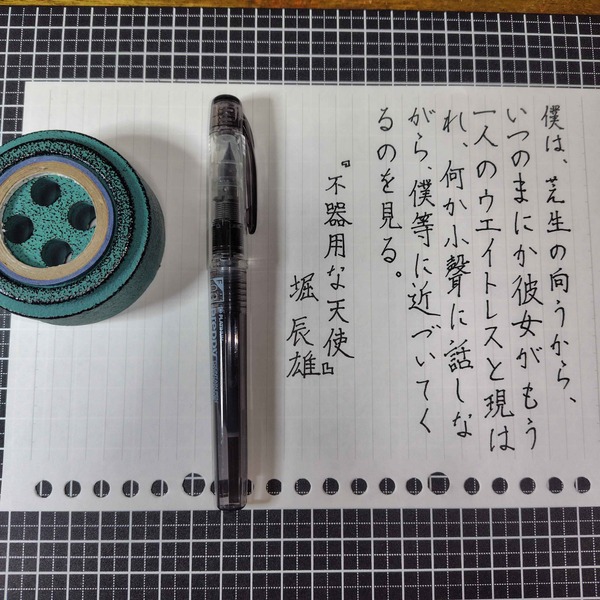 僕は、芝生の向うから、
いつのまにか彼女がもう
一人のウエイトレスと現は
れ、何か小聲に話しな
がら、僕等に近づいてく
るのを見る。
『不器用な天使』
堀辰雄
Preppy